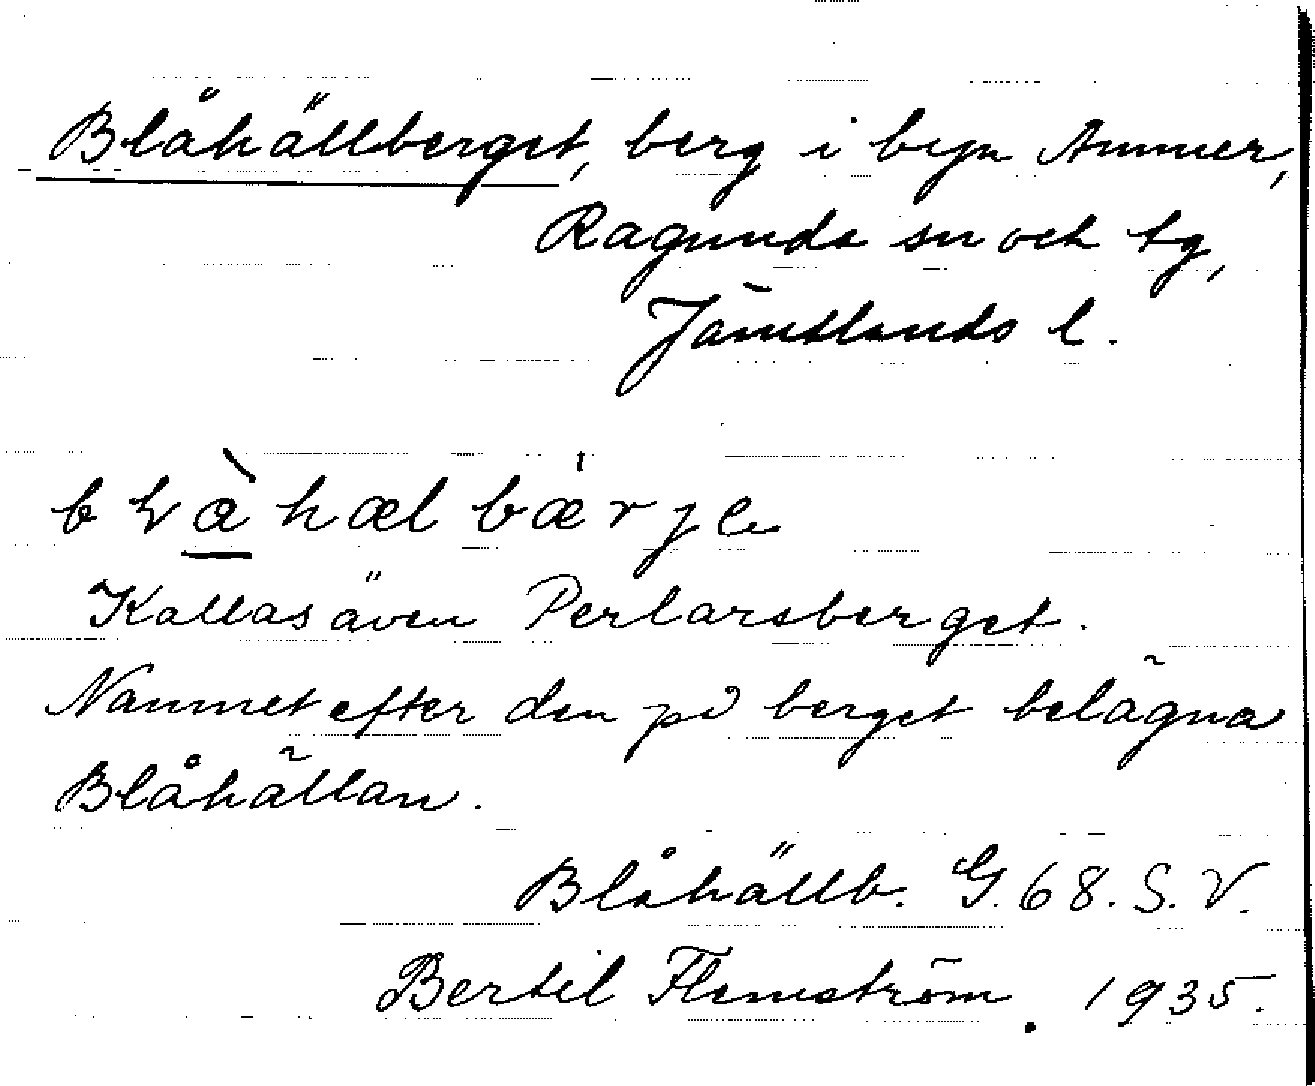 Blåhällberget, berg i byn Ammer,
Ragunda sn och tg,
Jämtlands l.
Kallas även Perlarsberget.
Namnet efter den på berget belägna
Blåhällan.
Blåhällb. G. 68. S. V.
Bertil Flemström. 1935.